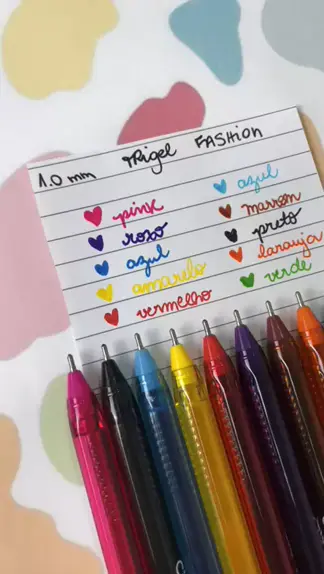 1.0 mm Trigel FASHION
pink
roxo
azul
amarelo
vermelho
azul
marrom
preto
laranja
verde